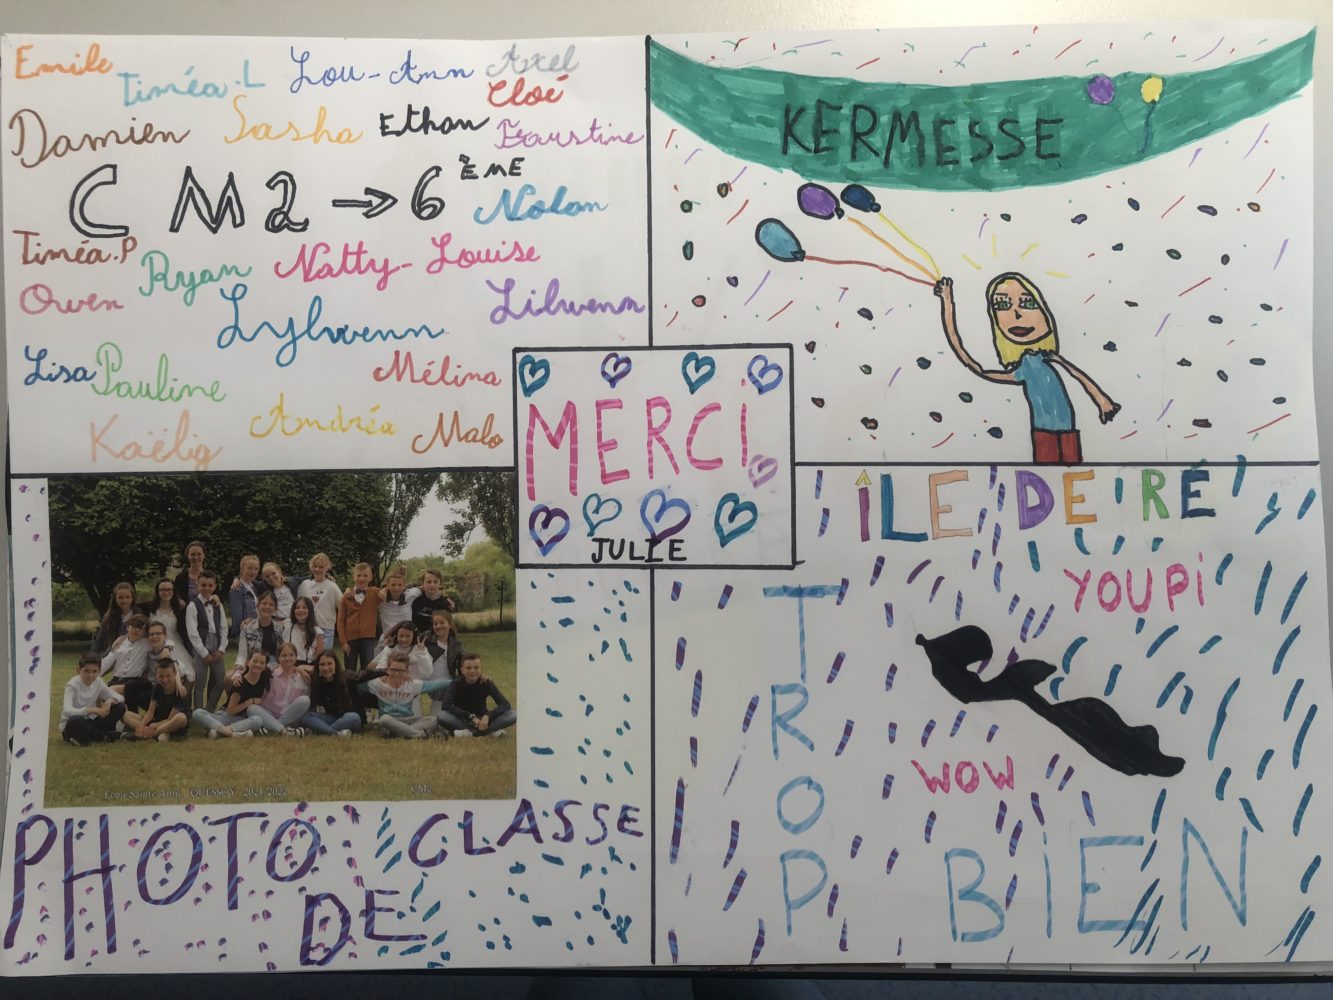 Emile
Timéa.L
Lou-Ann
Axel
Cloé
Damien
Sasha
Ethan
Faustine
CM2 → 6ÈME
Nolan
Timéa.P
Ryan
Natty-Louise
Owen
Lylwenn
Lilwenn
Lisa
Pauline
Mélina
Kaëlig
Andréa
Malo
KERMESSE
MERCI
JULIE
Ecole Sainte Anne QUESSOY 2021 2022
CM2
PHOTO DE CLASSE
ÎLE DE RÉ
YOUPI
WOW
TROP BIEN